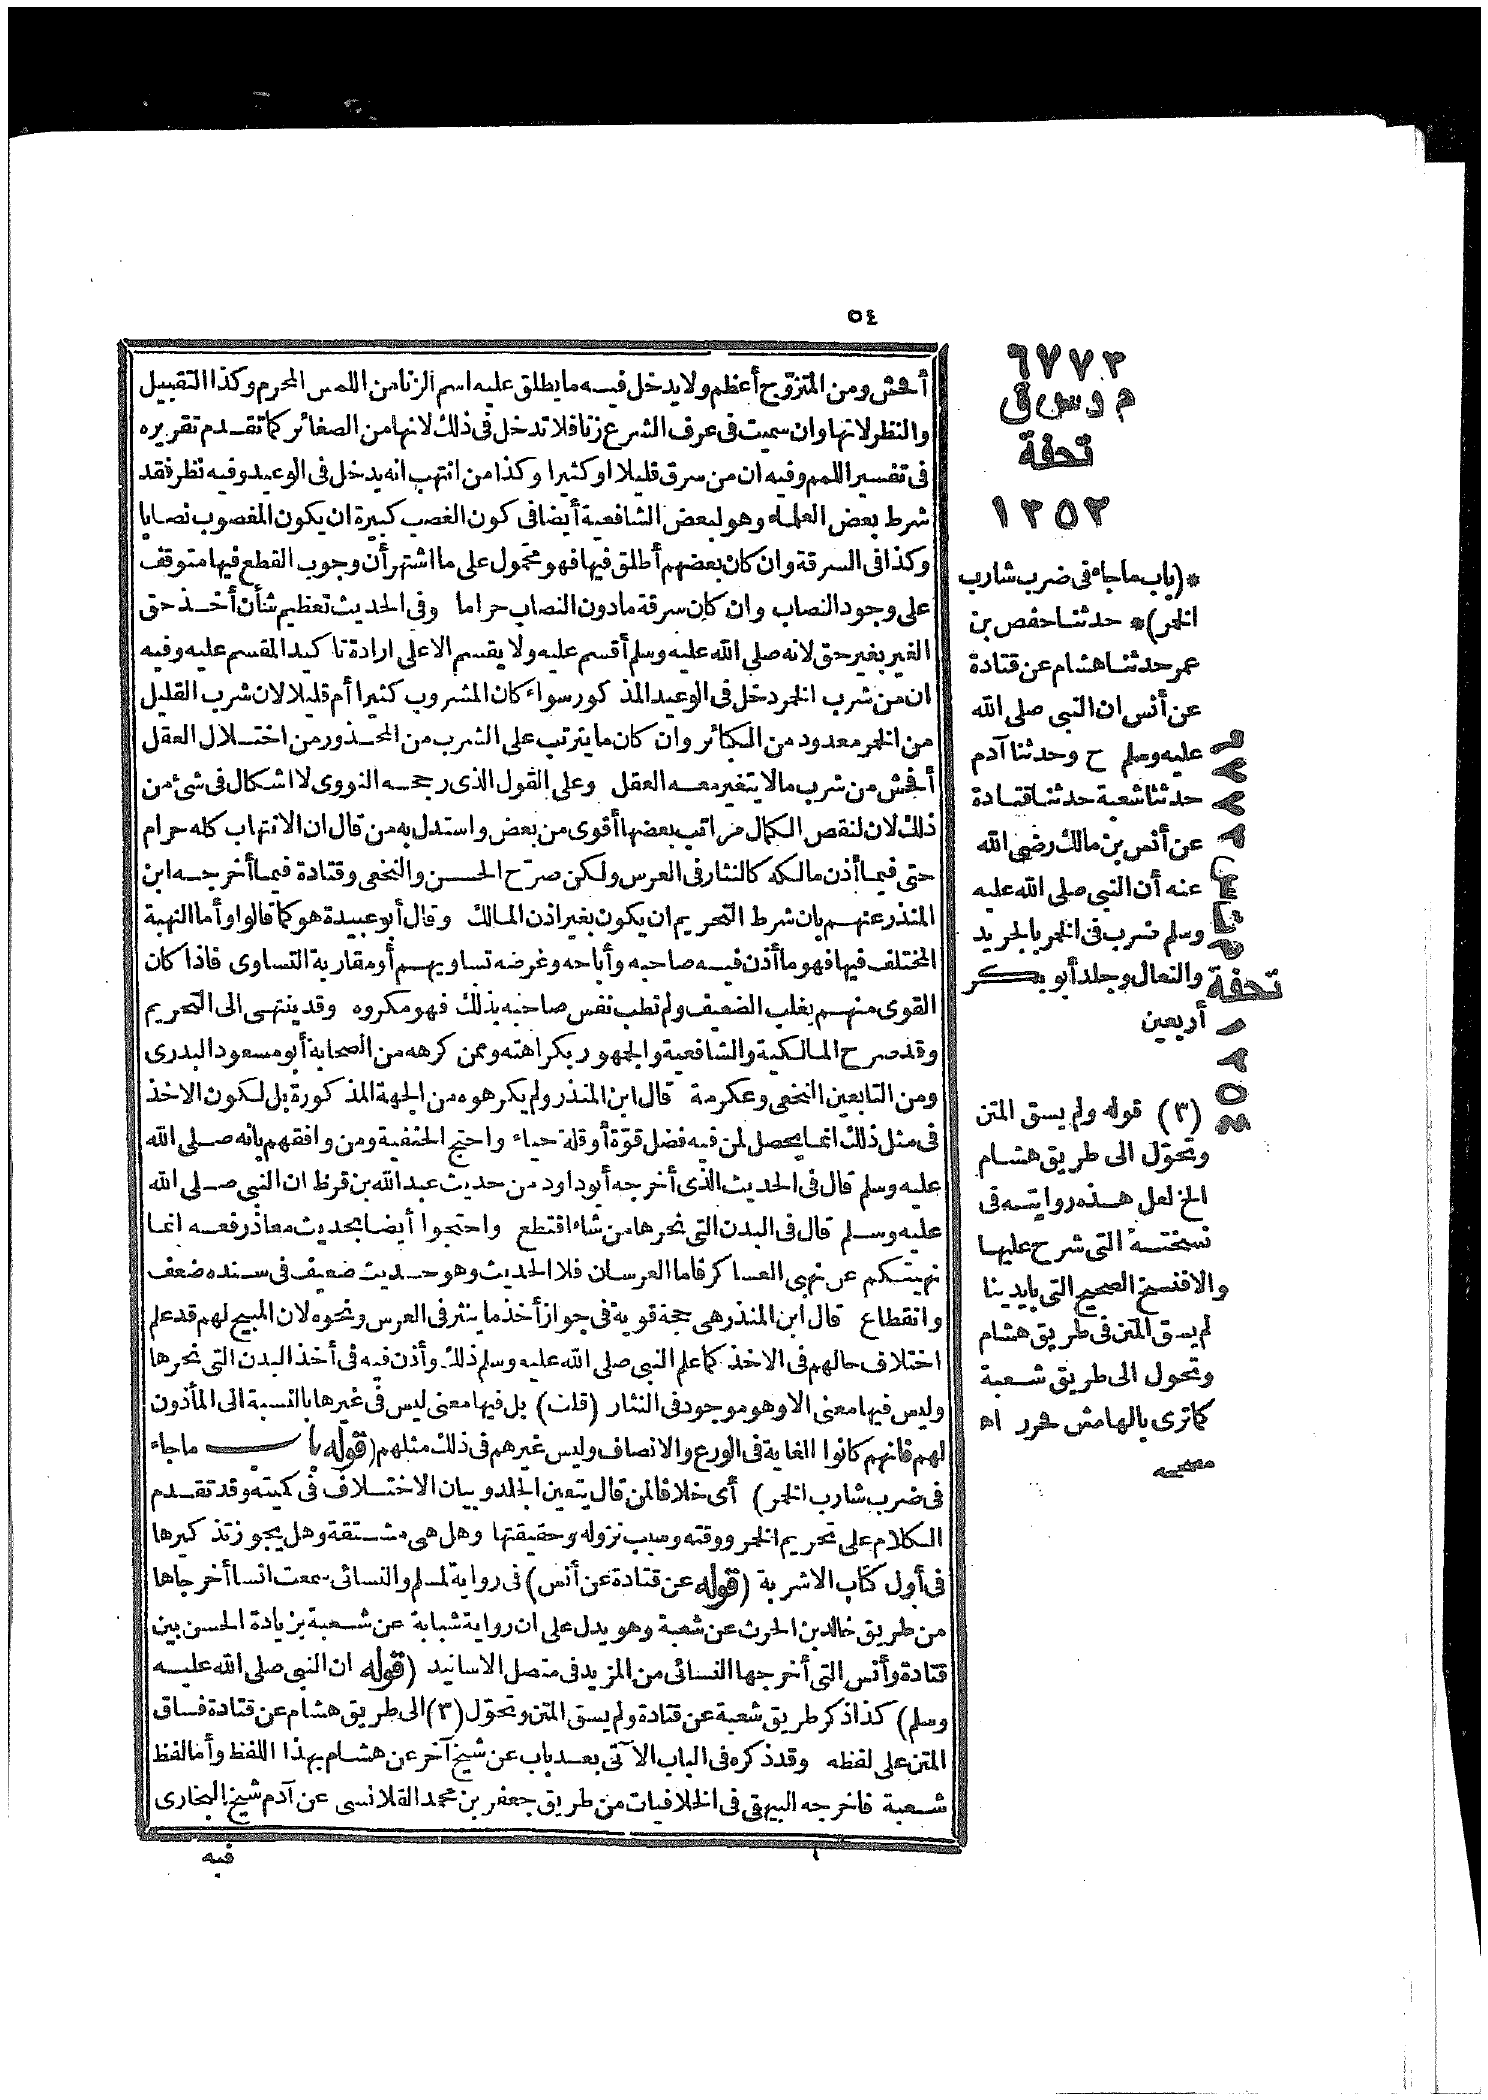 ٥٤
أفحش ومن المتزوّج أعظم ولا يدخل فيه ما يطلق عليه اسم الزنا من اللمس المحرم وكذا التقبيل
والنظر لانها وان سميت في عرف الشرع زنا فلا تدخل في ذلك لانها من الصغائر كما تقدم تقريره
في تفسير اللمم وفيه ان من سرق قليلا او كثيرا وكذا من انتهب انه يدخل في الوعيد وفيه نظر فقد
شرط بعض العلماء وهو لبعض الشافعية أيضا في كون الغصب كبيرة ان يكون المغصوب نصابا
وكذا في السرقة وان كان بعضهم أطلق فيها فهو محمول على ما اشتهر أن وجوب القطع فيها متوقف
على وجود النصاب وان كان سرقة ما دون النصاب حراما وفي الحديث تعظيم شأن أخذ حق
الغير بغير حق لانه صلى الله عليه وسلم أقسم عليه ولا يقسم الا على ارادة تاكيد المقسم عليه وفيه
ان من شرب الخمر دخل في الوعيد المذكور سواء كان المشروب كثيرا أم قليلا لان شرب القليل
من الخمر معدود من الكبائر وان كان ما يترتب على الشرب من المحذور من اختلال العقل
أفحش من شرب ما لا يتغير معه العقل وعلى القول الذي رجحه النووي لا اشكال في شئ من
ذلك لان لنقص الكمال مراتب بعضها أقوى من بعض واستدل به من قال ان الانتهاب كله حرام
حتى فيما أذن مالكه كالنثار في العرس ولكن صرّح الحسن والنخعي وقتادة فيما أخرجه ابن
المنذر عنهم بان شرط التحريم ان يكون بغير اذن المالك وقال أبو عبيدة هو كما قالوا وأما النهبة
المختلف فيها فهو ما أذن فيه صاحبه وأباحه وغرضه تساويهم أو مقاربة التساوي فاذا كان
القوى منهم يغلب الضعيف ولم تطب نفس صاحبه بذلك فهو مكروه وقد ينتهى الى التحريم
وقد صرح المالكية والشافعية والجمهور بكراهته وممن كرهه من الصحابة أبو مسعود البدرى
ومن التابعين النخعي وعكرمة قال ابن المنذر ولم يكرهوه من الجهة المذكورة بل لكون الاخذ
في مثل ذلك انما يحصل لمن فيه فضل قوّة أو قلة حياء واحتج الحنفية ومن وافقهم بانه صلى الله
عليه وسلم قال في الحديث الذي أخرجه أبو داود من حديث عبد الله بن قرظ ان النبي صلى الله
عليه وسلم قال في البدن التي نحرها من شاء اقتطع واحتجوا أيضا بحديث معاذ رفعه انما
نهيتكم عن نهبى العساكر فاما العرسان فلا الحديث وهو حديث ضعيف في سنده ضعف
وانقطاع قال ابن المنذر هي حجة قوية في جواز أخذ ما ينثر في العرس ونحوه لان المبيح لهم قد علم
اختلاف حالهم في الاخذ كما علم النبي صلى الله عليه وسلم ذلك وأذن فيه في أخذ البدن التي نحرها
وليس فيها معنى الا وهو موجود في النثار (قلت) بل فيها معنى ليس في غيرها بالنسبة الى المأذون
لهم فانهم كانوا الغاية في الورع والانصاف وليس غيرهم في ذلك مثلهم (قوله باب ما جاء
في ضرب شارب الخمر) أى خلافا لمن قال يتعين الجلد وبيان الاختلاف في كميته وقد تقدم
الكلام على تحريم الخمر ووقته وسبب نزوله وحقيقتها وهل هي مشتقة وهل يجوز تذكيرها
في أول كتاب الاشربة (قوله عن قتادة عن أنس) في رواية لمسلم والنسائى سمعت انسا أخرجاها
من طريق خالد بن الحرث عن شعبة وهو يدل على ان رواية شبابة عن شعبة بزيادة الحسن بين
قتادة وأنس التي أخرجها النسائى من المزيد في متصل الاسانيد (قوله ان النبي صلى الله عليه
وسلم) كذا ذكر طريق شعبة عن قتادة ولم يسق المتن وتحوّل (٣) الى طريق هشام عن قتادة فساق
المتن على لفظه وقد ذكره في الباب الآتى بعد باب عن شيخ آخر عن هشام بهذا اللفظ وأما لفظ
شعبة فاخرجه البيهقى في الخلافيات من طريق جعفر بن محمد القلانسى عن آدم شيخ البخارى
فيه
٦٧٧٢
م د س ق
تحفة
١٣٥٢
*(باب ما جاء في ضرب شارب
الخمر)* حدثنا حفص بن
عمر حدثنا هشام عن قتادة
عن أنس ان النبي صلى الله
عليه وسلم ح وحدثنا آدم
حدثنا شعبة حدثنا قتادة
عن أنس بن مالك رضى الله
عنه أن النبي صلى الله عليه
وسلم ضرب في الخمر بالجريد
والنعال وجلد أبو بكر
أربعين
تحفة
(٣) قوله ولم يسق المتن
وتحوّل الى طريق هشام
الخ لعل هذه روايته في
نسخته التي شرح عليها
والا فنسخ الصحيح التي بايدينا
لم يسق المتن في طريق هشام
وتحول الى طريق شعبة
كما ترى بالهامش فحرر اه
مصححه